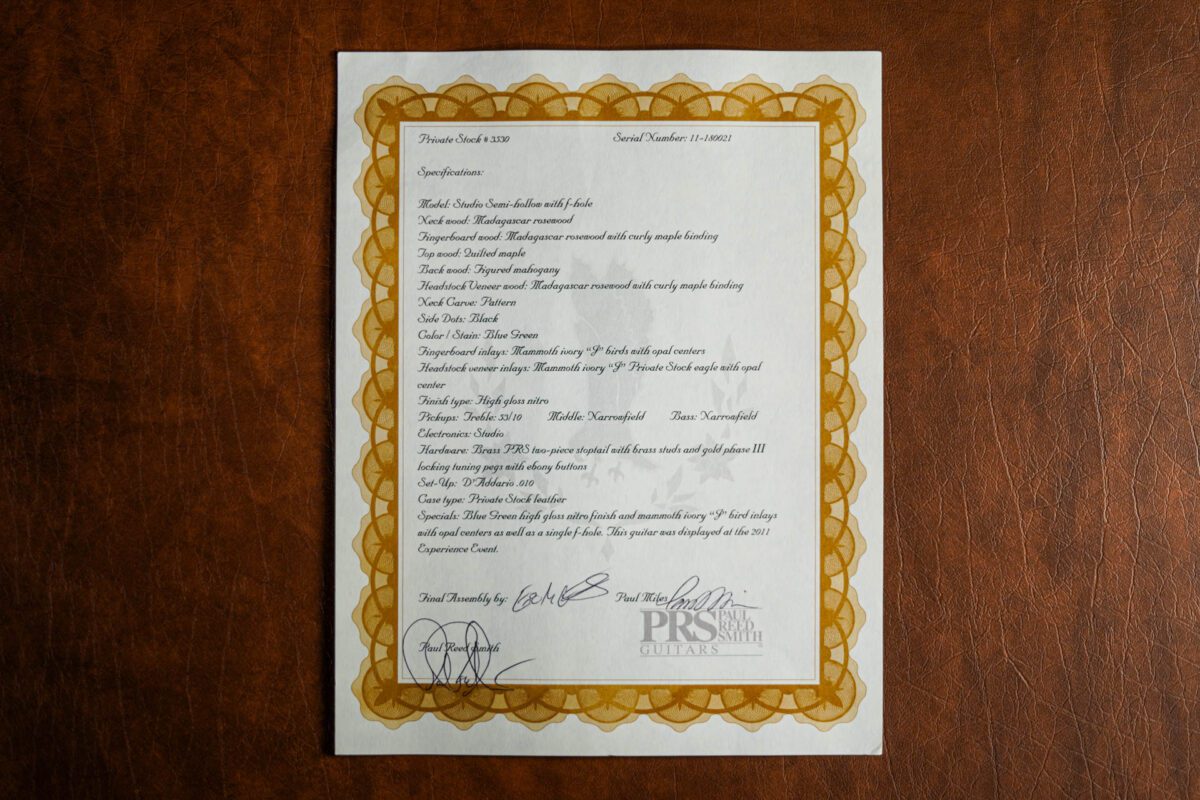 Private Stock # 3530 Serial Number: 11-180021
Specifications:
Model: Studio Semi-hollow with f-hole
Neck wood: Madagascar rosewood
Fingerboard wood: Madagascar rosewood with curly maple binding
Top wood: Quilted maple
Back wood: Figured mahogany
Headstock Veneer wood: Madagascar rosewood with curly maple binding
Neck Carve: Pattern
Side Dots: Black
Color / Stain: Blue Green
Fingerboard inlays: Mammoth ivory "J" birds with opal centers
Headstock veneer inlays: Mammoth ivory "J" Private Stock eagle with opal
center
Finish type: High gloss nitro
Pickups: Treble: 53/10 Middle: Narrowfield Bass: Narrowfield
Electronics: Studio
Hardware: Brass PRS two-piece stoptail with brass studs and gold phase III
locking tuning pegs with ebony buttons
Set-Up: D'Addario .010
Case type: Private Stock leather
Specials: Blue Green high gloss nitro finish and mammoth ivory "J" bird inlays
with opal centers as well as a single f-hole. This guitar was displayed at the 2011
Experience Event.
Final Assembly by: Paul Miles
Paul Reed Smith
PRS PAUL REED SMITH
GUITARS